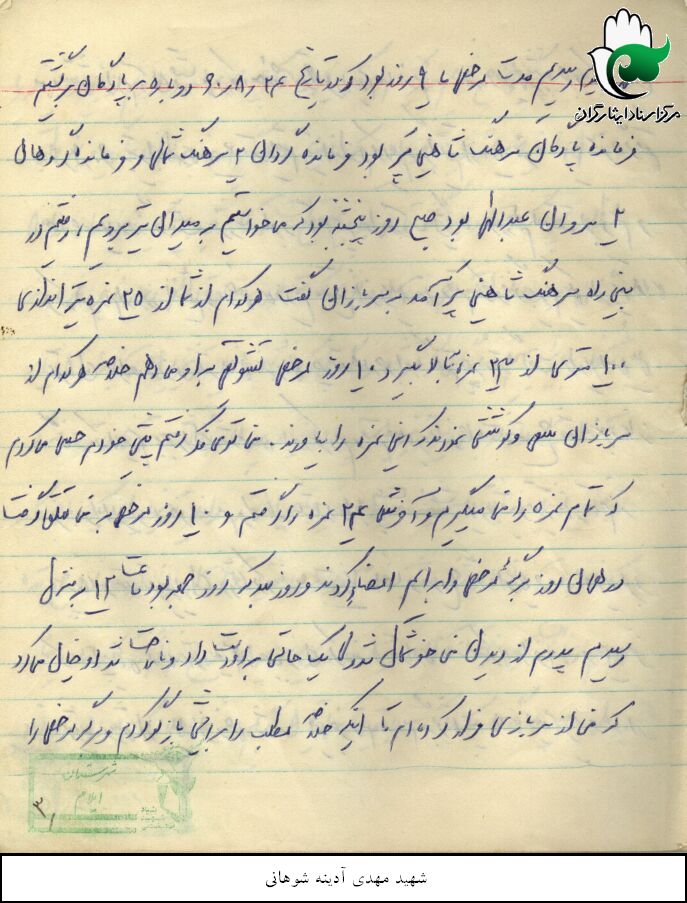 رسیدیم مدت مرخصی ما ۹ روز بود که در تاریخ ۲۴ر۸ر۶۰ دوباره به پادگان برگشتیم
مرکز اسناد ایثارگران
فرمانده پادگان سرهنگ شاهین پر بود فرمانده گردان ۲ سرهنگ و فرمانده گروهان
۲ سروان عبدالهی بود صبح روز پنجشنبه بود که می‌خواستیم به میدان تیر برویم، رفتیم در
بین راه سرهنگ شاهین پر آمد به سربازان گفت هر کدام از شما از ۲۵ نمره تیراندازی
۱۰۰ متری از ۲۳ نمره به بالا بگیرد ۱۰ روز مرخصی تشویقی به او می دهم خلاصه هر کدام از
سربازان سعی و کوشش نمودند که این نمره را بیاورند. من توی فکر رفتم پیش خودم حس می‌کردم
که تمام نمره را می‌گیرم و آخرش ۲۴ نمره را گرفتم و ۱۰ روز مرخصی به من تعلق گرفت
در همان روز برگه مرخصی را برایم امضاء کردند و روز بعد که روز جمعه بود ساعت ۱۲ به منزل
رسیدم پدرم از دیدن من خوشحال شد ولی یک حالتی به او دست داد و ناراحت شد او خیال می‌کرد
که من از سربازی فرار کرده ام تا اینکه خلاصه مطلب را برایش بازگو کردم و برگه مرخصی را
شهرستان
ایلام
بنیاد
شهید
۳۱
شهید مهدی آدینه شوهانی